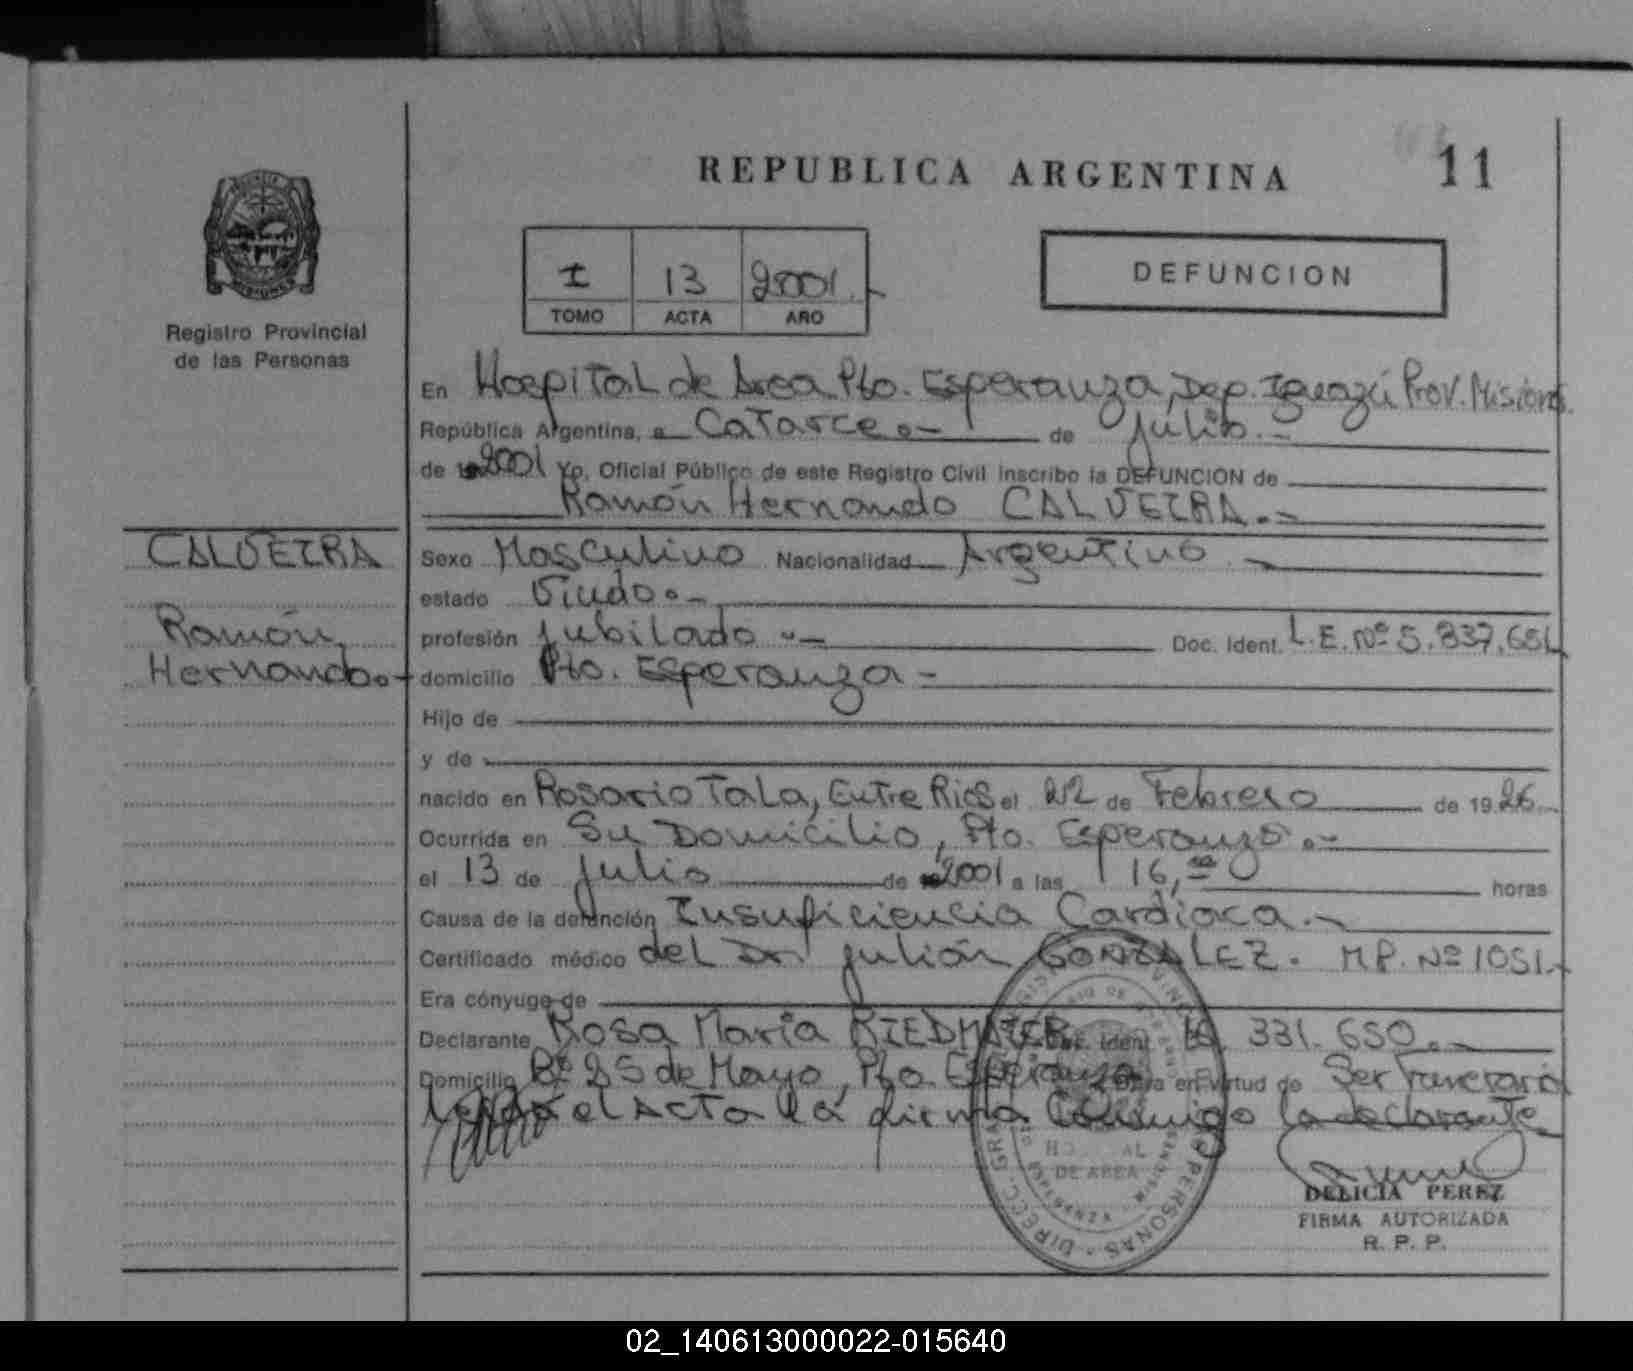 REPUBLICA ARGENTINA
11
I 13 2001.-
TOMO ACTA AÑO
DEFUNCION
MISIONES
Registro Provincial
de las Personas
En Hospital de Area Pto. Esperanza, Dep. Iguazú Prov. Misiones.
República Argentina, a Catorce.- de Julio.-
de 2001 Yo, Oficial Público de este Registro Civil inscribo la DEFUNCION de
Ramón Hernando CALVEIRA.-
CALVEIRA
Ramón
Hernando.-
Sexo Masculino Nacionalidad Argentino.-
estado Viudo.-
profesión Jubilado.- Doc. Ident. L.E. Nº 5.837.651
domicilio Pto. Esperanza-
Hijo de
y de
nacido en Rosario Tala, Entre Rios el 22 de Febrero de 1926
Ocurrida en Su Domicilio, Pto. Esperanza.-
el 13 de Julio de 2001 a las 16,00 horas
Causa de la defunción Insuficiencia Cardíaca.-
Certificado médico del Dr. Julián GONZALEZ. M.P. Nº 1051.-
Era cónyuge de
Declarante Rosa María RIEDMAIER Doc. Ident. 16.331.650.-
Domicilio Bº 25 de Mayo, Pto. Esperanza Obra en virtud de Ser Funeraria
Leída el Acta la firma Conmigo la declarante.
HOSPITAL
DE AREA
DELICIA PEREZ
FIRMA AUTORIZADA
R. P. P.
02_140613000022-015640